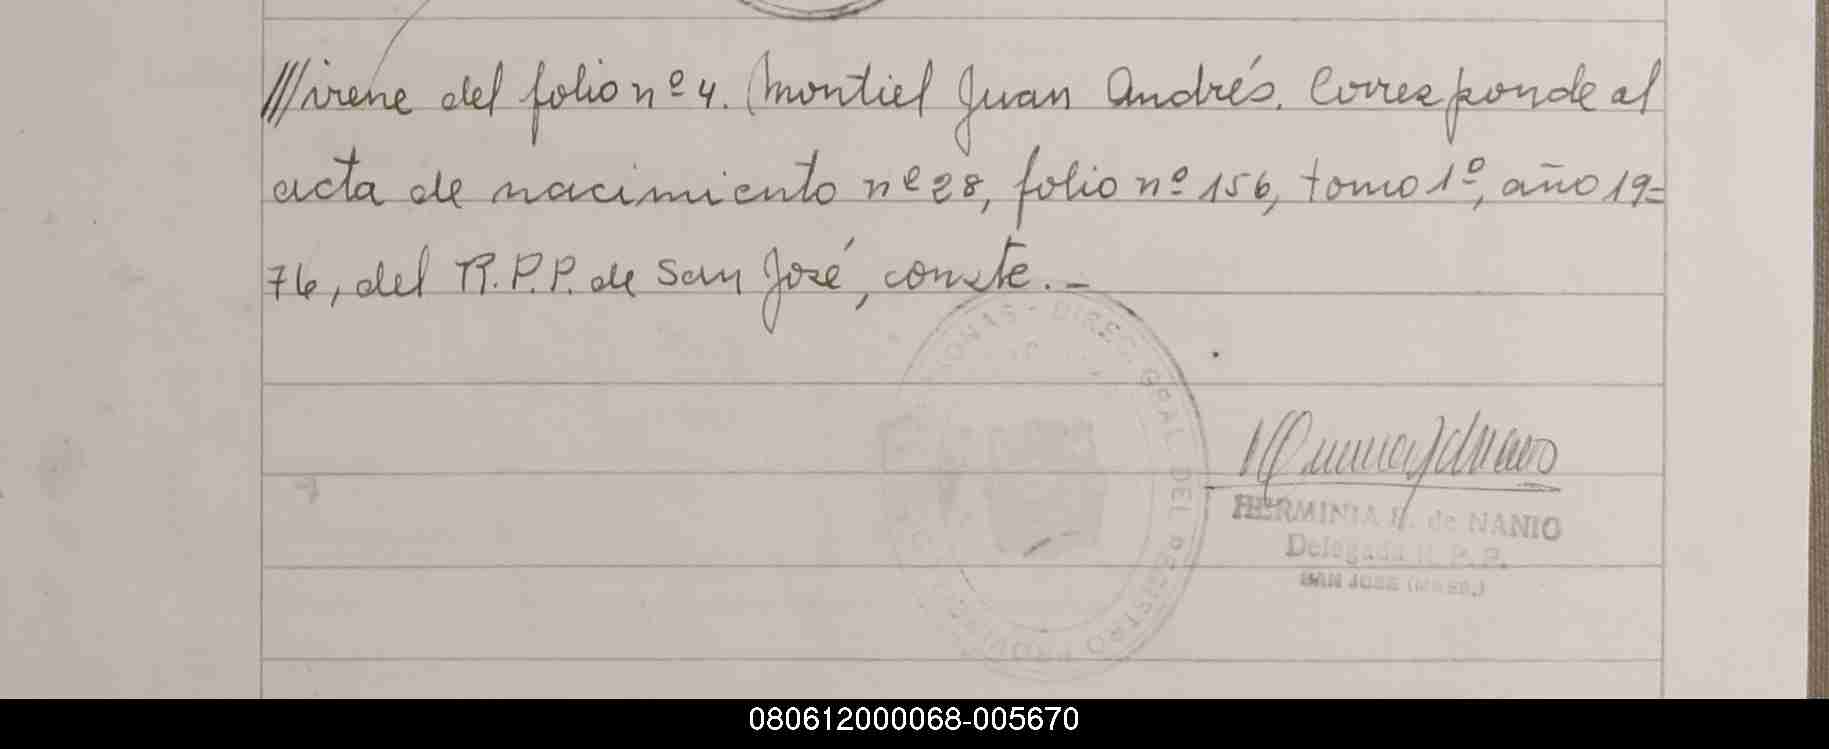 ///viene del folio nº 4. Montiel Juan Andrés. Corresponde al
acta de nacimiento nº 28, folio nº 156, tomo 1º, año 19=
76, del R.P.P. de San José, conste.-
DIREC. GRAL DEL REGISTRO
HERMINIA de NANIO
Delegada R. P. P.
SAN JOSE
080612000068-005670